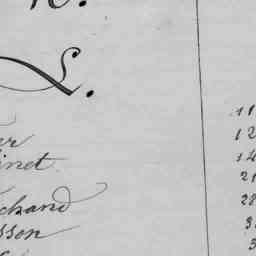 L.
er
inet.
chand
sson
11
12
14
21
28
3
3